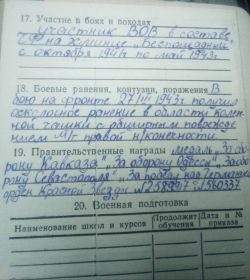 17. Участие в боях и походах
участник ВОВ в составе
на эсминце „Беспощадный"
с октября 1941г по май 1943г.
18. Боевые ранения, контузии, поражения В
бою на фронте 27/III 1943г получил
осколочное ранение в области колен-
ной чашки с обширным поврежде-
нием м/т правой н/конечности
19. Правительственные награды медаль „За обо-
рону Кавказа", „За оборону Одессы", „За обо-
рону Севастополя", „За победу над Германией"
орден Красной Звезды №1560337
20. Военная подготовка
Наименование школ и курсов
Продолжит.
обучения
Дата и №
приказа